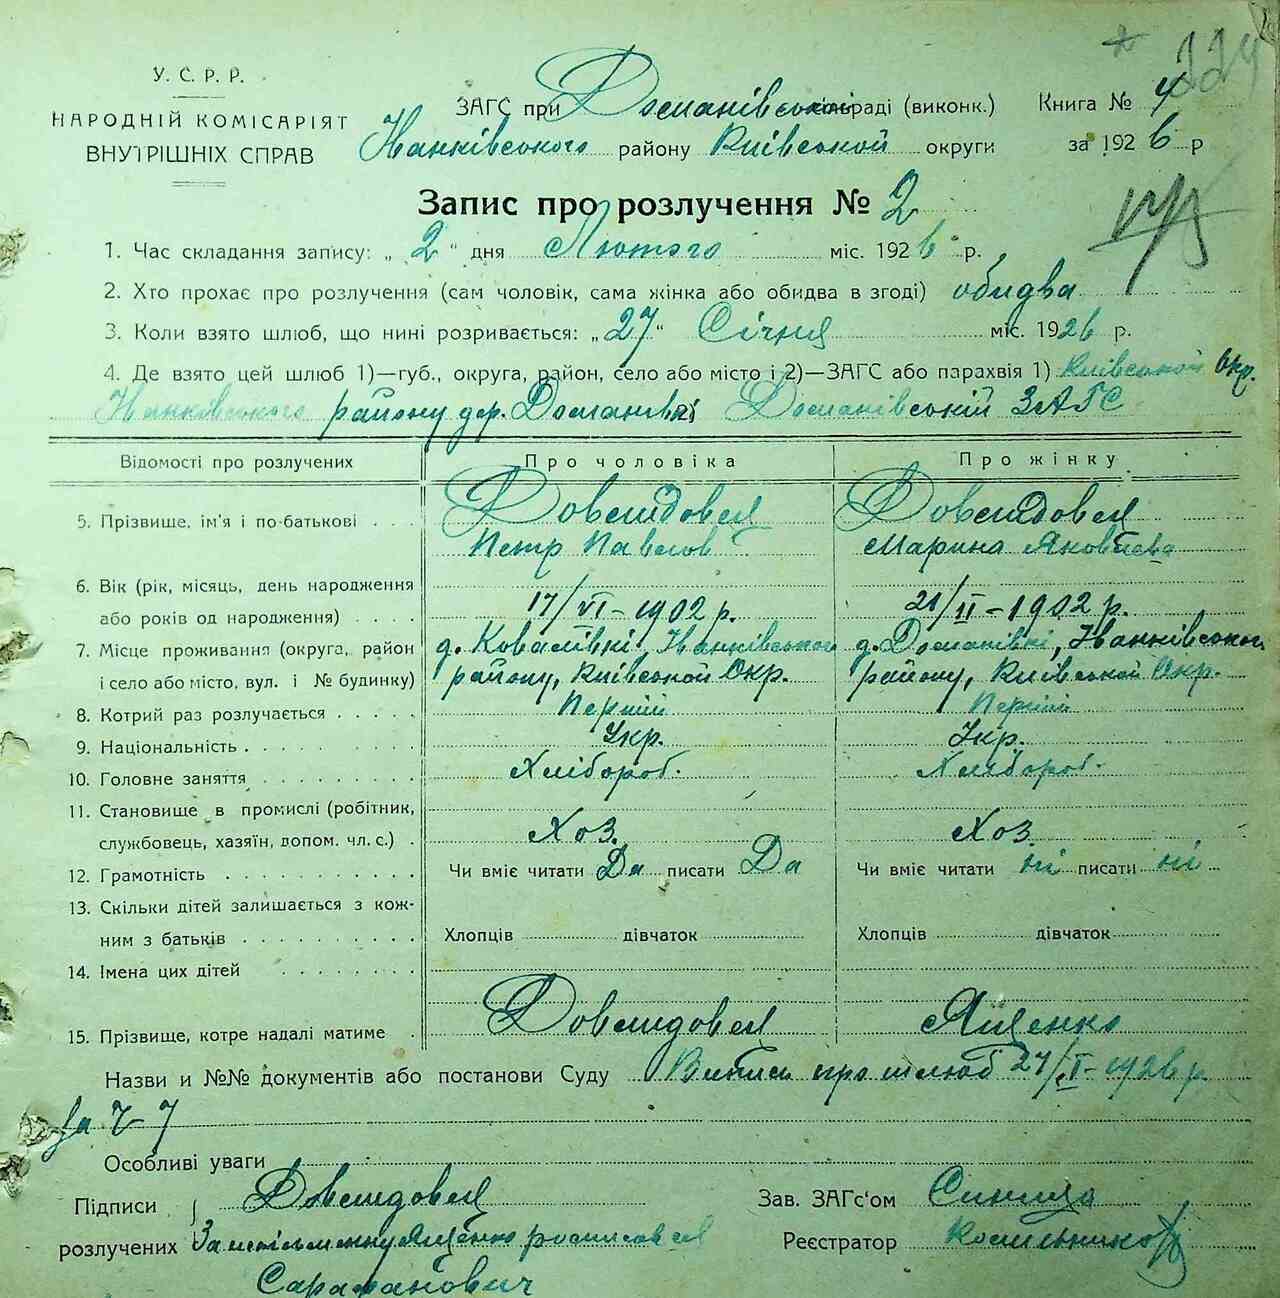 У. С. Р. Р.
НАРОДНІЙ КОМІСАРІЯТ
ВНУТРІШНІХ СПРАВ
ЗАГС при Доманівській раді (виконк.) Книга № 4
Іванківського району Київської округи за 1926 р
Запис про розлучення № 2
1. Час складання запису: „2“ дня Лютого міс. 1926 р.
2. Хто прохає про розлучення (сам чоловік, сама жінка або обидва в згоді) обидва
3. Коли взято шлюб, що нині розривається: „27“ Січня міс. 1926 р.
4. Де взято цей шлюб 1)—губ., округа, район, село або місто і 2)—ЗАГС або парахвія 1) Київської Окр.
Іванківського району дер. Доманівці Доманівській ЗАГС
Відомості про розлучених Про чоловіка Про жінку
5. Прізвище, ім'я і по-батькові
Петр Павлов Марина Яковлева
6. Вік (рік, місяць, день народження
або років од народження) 17/VI-1902 р. 21/II-1902 р.
7. Місце проживання (округа, район д. Ковалівкі, Іванківського д. Доманівкі, Іванківського
і село або місто, вул. і № будинку) району, Київської Окр. району, Київської Окр.
8. Котрий раз розлучається Перший Перший
9. Національність Укр. Укр.
10. Головне заняття Хлібороб. Хлібороб.
11. Становище в промислі (робітник,
службовець, хазяїн, допом. чл. с.) Хоз. Хоз.
12. Грамотність Чи вміє читати Да писати Да Чи вміє читати ні писати ні
13. Скільки дітей залишається з кож-
ним з батьків Хлопців дівчаток Хлопців дівчаток
14. Імена цих дітей
15. Прізвище, котре надалі матиме Ященко
Назви и №№ документів або постанови Суду Випись про шлюб 27/I-1926 р.
за Ч 7
Особливі уваги
Підписи Зав. ЗАГс'ом Синица
розлучених Ященко росписался Реєстратор
Сарапанович